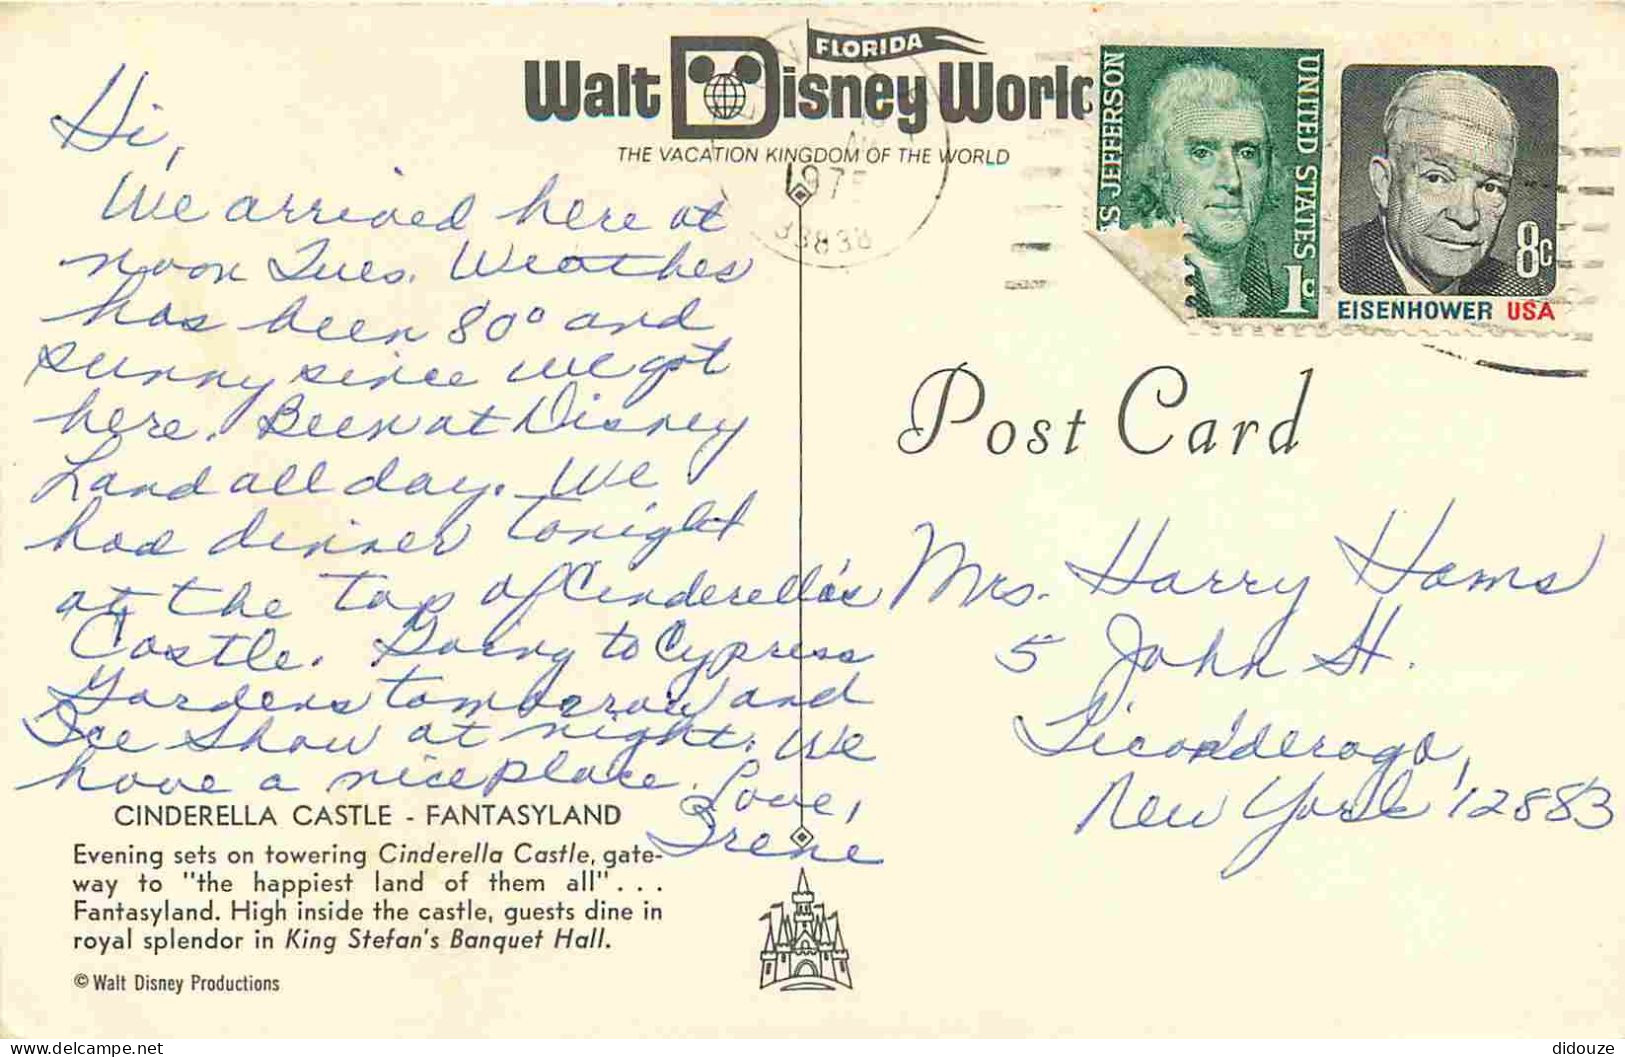 FLORIDA
Walt Disney World
THE VACATION KINGDOM OF THE WORLD
1975
33838
S JEFFERSON
UNITED STATES
1c
8c
EISENHOWER USA
Post Card
Hi,
We arrived here at
noon Tues. Weather
has been 80° and
sunny since we got
here. Been at Disney
Land all day. We
had dinner tonight
at the top of Cinderella's
Castle. Going to Cypress
Gardens tomorrow and
Ice Show at night. We
have a nice place.
Love,
Irene
Mrs. Harry Hams
5 John St.
Ticonderoga,
New York 12883
CINDERELLA CASTLE - FANTASYLAND
Evening sets on towering Cinderella Castle, gate-
way to "the happiest land of them all" . . .
Fantasyland. High inside the castle, guests dine in
royal splendor in King Stefan's Banquet Hall.
© Walt Disney Productions
delcampe.net
didouze